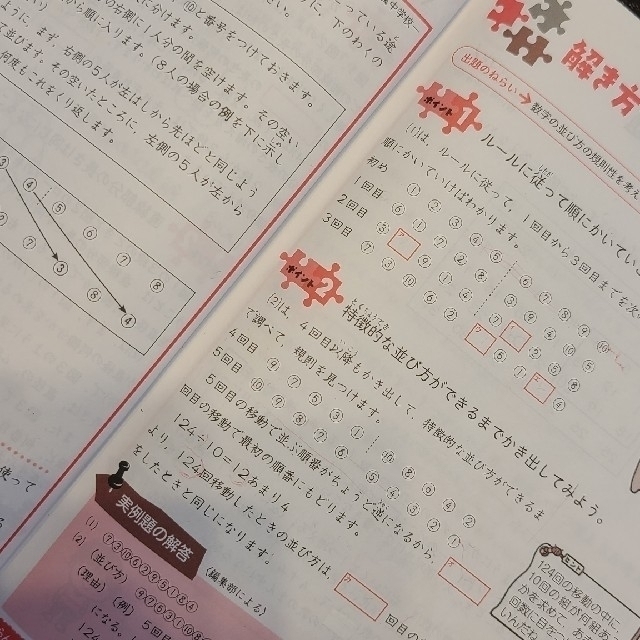 中学校―
っている途
に、下のわくの
い。
に分けます。
⑩と番号をつけておきます。
の右側に1人分の間を空けます。その空い
から順に入ります。(8人の場合の例を下に示し
ように、まず、右側の5人が左はしから先ほどと同じよう
て並びます。その空いたところに、左側の5人が左から
何度もこれをくり返します。
③ ④ ⑤ ⑥ ⑦ ⑧
⑦ ③ ⑧ ④
使って
解き方
出題のねらい
数字の並び方の規則性を考え
ポイント1
ルールに従って順にかいてい
(1)は、ルールに従って、1回目から3回目までを次
順にかいていけばわかります。
初め ① ② ③ ④ ⑤ ⑥ ⑦ ⑧ ⑨ ⑩
1回目 ⑥ ① ⑦ ② ⑧ ③ ⑨ ④ ⑩ ⑤
2回目
3回目
ポイント2
特徴的な並び方ができるまでかき出してみよう。
(2)は、4回目以降もかき出して、特徴的な並び方ができるま
で調べて、規則を見つけます。
4回目 ⑨ ⑦ ⑤ ③ ① ⑩ ⑧ ⑥ ④ ②
5回目 ⑩ ⑨ ⑧ ⑦ ⑥ ⑤ ④ ③ ② ①
5回目の移動で並ぶ順番がちょうど逆になるから、
回目の移動で最初の順番にもどります。
124÷10=12あまり4
より、124回移動したときの並び方は、
回目の
をしたときと同じになります。
実例題の解答
(編集部による)
(1) ⑦③⑩⑥②⑨⑤①⑧④
(2) (並び方) ⑨⑦⑤③①⑩⑧
(理由) (例) 5回目
になる。
124
124回の移動の中に
10回の組が何組あ
かを求めて、あ
回数に目を
いんだね